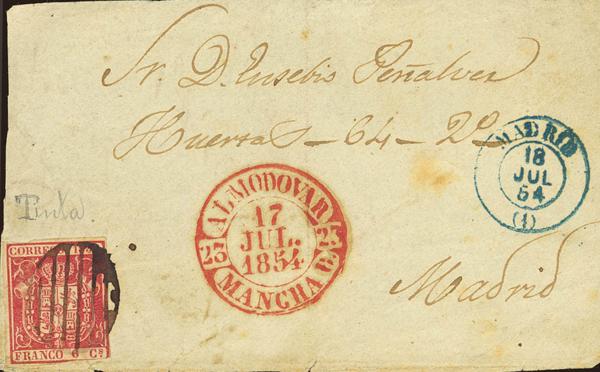 Sr. D. Eusebio Peñalver
Huertas - 64 - 2º
MADRID
18
JUL
54
(1)
ALMODOVAR
17
JUL.
1854
23 23
MANCHA C.
Tinta.
Madrid
CORREOS
FRANCO 6 Cs